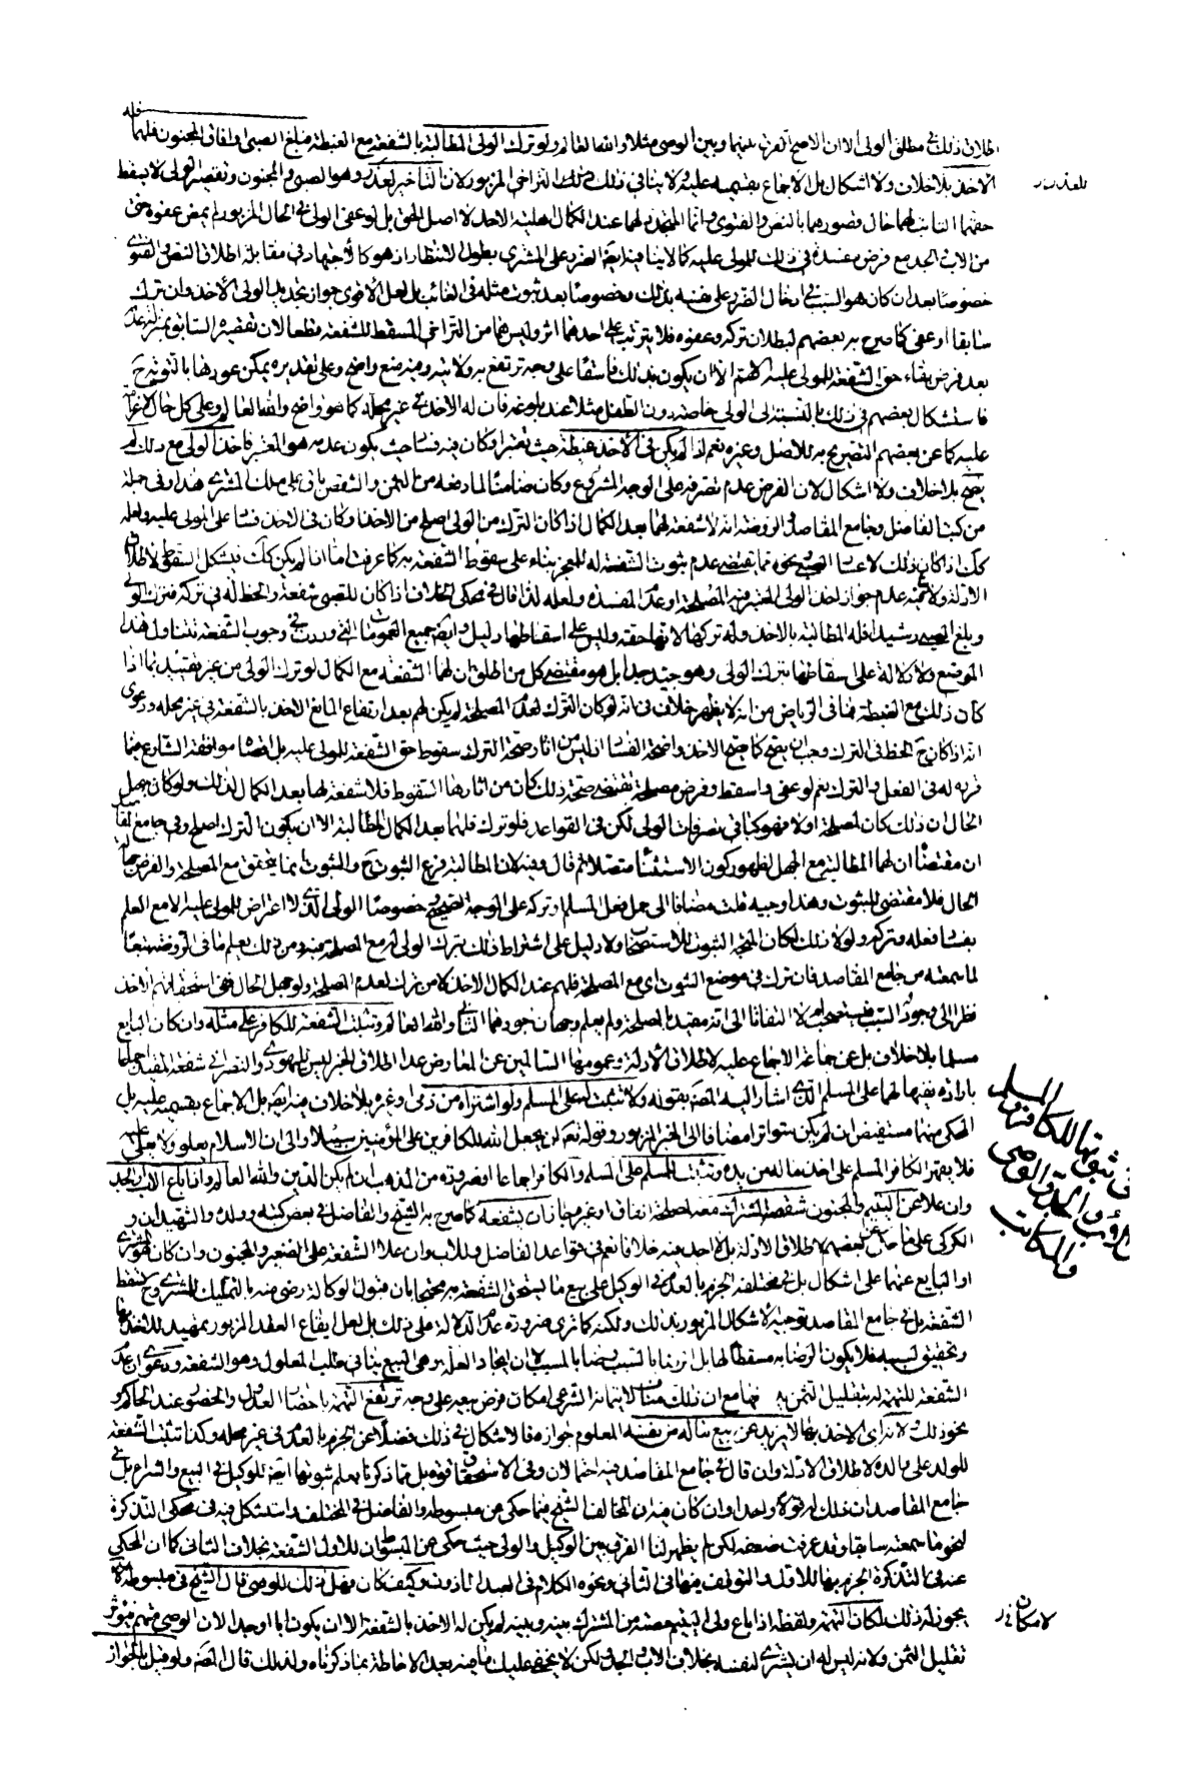 اطلاق ذلك في مطلق الولي الا ان الاصح الفرق بينهما وبين الوصي مثلا والله العالم ولو ترك الولي المطالبة بالشفعة مع الغبطة فبلغ الصبي او افاق المجنون فلهما
الاخذ بلا خلاف ولا اشكال بل الاجماع بقسميه عليه ولا ينافي ذلك التراخي المزبور لان التأخير لعذر وهو الصبي والمجنون وتقصير الولي لا يسقط
حقهما الثابت لهما حال قصورهما بالنص والفتوى وانما المتجدد لهما عند الكمال اهلية الاخذ لا اصل الحق بل لو عفى الولي في الحال المزبور لم يمض عفوه حتى
من الاب والجد مع فرض مفسدة في ذلك للمولى عليه كما لا ينافيه ايضا الضرر على المشتري بطول الانتظار اذ هو كالاجتهاد في مقابلة اطلاق النص والفتوى
خصوصا بعد ان كان هو السبب في ادخال الضرر على نفسه بذلك وخصوصا بعد ثبوت مثله في الغائب بل لعل الاقوى جواز تجديد الولي الاخذ وان ترك
سابقا او عفى كما صرح به بعضهم لبطلان تركه وعفوه فلا يترتب على احدهما اثر وليس هما من التراخي المسقط للشفعة قطعا لان تقصيره السابق بمنزلة عدمه
بعد فرض بقاء حق الشفعة للمولى عليه اللهم الا ان يكون بذلك فاسقا على وجه ترتفع به ولايته وفيه منع واضح وعلى تقديره يمكن عودها بالتوبة ح
فاستشكال بعضهم في ذلك بالنسبة الى الولي خاصة دون الطفل مثلا عند بلوغه فان له الاخذ في غير محله كما هو واضح والله العالم وعلى كل حال لا غرامة
عليه كما عن بعضهم التصريح به للاصل وغيره نعم اذا لم يكن في الاخذ غبطة حيث تعتبر او كان فيه فسادا حيث يكون عدمه هو المعتبر فاخذ الولي مع ذلك لم
يصح بلا خلاف ولا اشكال لان الفرض عدم تصرفه على الوجه الشرعي وكان ضامنا لما دفعه من الثمن والشقص باق على ملك المشتري هذا وفي جملة
من كتب الفاضل وجامع المقاصد والروضة انه لا شفعة لهما بعد الكمال اذا كان الترك من الولي اصلح من الاخذ او كان في الاخذ فسادا على المولى عليه ولعله
كك اذا كان ذلك لاعسار الصبي ونحوه مما يقتضي عدم ثبوت الشفعة له للعجز بناء على سقوط الشفعة به كما عرفت اما اذا لم يكن كك فيشكل السقوط لاطلاق
الادلة ولا ينافيه عدم جواز اخذ الولي المعتبر فيه المصلحة او عدم المفسدة ولعله لذا قال في محكي الخلاف اذا كان للصبي شفعة والحظ له في تركه فترك الولي
وبلغ الصبي رشيدا فله المطالبة بالاخذ وله تركها لانها حقه وليس على اسقاطها دليل وايضا جميع العمومات التي وردت في وجوب الشفعة تتناول هذا
الموضع ولا دلالة على اسقاطها بترك الولي وهو جيد جدا بل هو مقتضى كل من اطلق ان لهما الشفعة مع الكمال لو ترك الولي من غير تقييد بما اذا
كان ذلك مع الغبطة فما في الرياض من انه لا يظهر خلاف في انه لو كان الترك لعدم المصلحة لم يكن لهم بعد ارتفاع المانع الاخذ بالشفعة في غير محله ودعوى
انه اذا كان ح الحظ في الترك وجب ان يصح كما يصح الاخذ واضحة الفساد اذ ليس من اثار صحة الترك سقوط حق الشفعة للمولى عليه بل اقصاها موافقة الشارع فيما
قرره له في الفعل والترك نعم لو عفى واسقط وفرض مصلحة تقتضي صحة ذلك كان من اثارها السقوط فلا شفعة لهما بعد الكمال لذلك ولو كان جهل
الحال ان ذلك كان لمصلحة او لا فهو كباقي تصرفات الولي لكن في القواعد فلو ترك فلهما بعد الكمال المطالبة الا ان يكون الترك اصلح وفي جامع المقاصد
ان مقتضاه ان لهما المطالبة مع الجهل لظهور كون الاستثناء متصلا ثم قال وفيه لان المطالبة فرع الثبوت ح والثبوت انما يتحقق مع المصلحة والفرض جهالة
الحال فلا مقتضى للثبوت وهذا وجيه قلت مضافا الى حمل فعل المسلم وتركه على الوجه الصحيح وخصوصا الولي الذي لا اعتراض للمولى عليه الا مع العلم
بفساد فعله وتركه ولولا ذلك لكان المتجه الثبوت للاستصحاب ولا دليل على اشتراط ذلك بترك الولي له مع المصلحة ومن ذلك يعلم ما في الروضة تبعا
لما سمعته من جامع المقاصد فان ترك في موضع الثبوت اي مع المصلحة فلهم عند الكمال الاخذ لا من ترك لعدم المصلحة ولو جهل الحال ففي استحقاقهم الاخذ
نظرا الى وجود السبب فيستصحب ام لا التفاتا الى انه مقيد بالمصلحة ولم يعلم وجهان اجودهما الثاني والله العالم وتثبت الشفعة للكافر على مثله وان كان البايع
مسلما بلا خلاف بل عن جماعة الاجماع عليه لاطلاق الادلة وعمومها السالمين عن المعارض عدا اطلاق الخبر ليس لليهودي والنصراني شفعة المقيد اجماعا
بارادة نفيها لهما على المسلم الذي اشار اليه المصنف بقوله ولا تثبت له على المسلم ولو اشتراه من ذمي او غيره بلا خلاف فيه ايضا بل الاجماع بقسميه عليه بل
المحكي منهما مستفيض ان لم يكن متواترا مضافا الى الخبر المزبور وقوله تعالى لن يجعل الله للكافرين على المؤمنين سبيلا والى ان الاسلام يعلو ولا يعلى عليه
فلا يقهر الكافر المسلم على اخذ ماله من يده وتثبت للمسلم على المسلم والكافر اجماعا او ضرورة من المذهب ان لم يكن الدين والله العالم واذا باع الاب والجد
وان علا عن اليتيم والمجنون شقصه المشترك معه لمصلحة انفاق او غيره جاز ان يشفعه كما صرح به الشيخ والفاضل في بعض كتبه وولده والشهيدان و
الكركي على ما حكي عن بعضهم لاطلاق الادلة بل لا اجد فيه خلافا نعم في قواعد الفاضل وللاب وان علا الشفعة على الصغير والمجنون وان كان هو المشتري
او البايع عنهما على اشكال بل في مختلفه الجزم بالعدم في الوكيل على بيع ما يستحق الشفعة به محتجا بان قبول الوكالة رضى منه بالتمليك للمشتري وح تسقط
الشفعة بل في جامع المقاصد توجيه الاشكال المزبور بذلك ولكنه كما ترى ضرورة عدم الدلالة على ذلك بل لعل ايقاع العقد المزبور تمهيد للاخذ بها
وتحقيق لسببه فلا يكون الرضا به مسقطا لها بل الرضا بالسبب رضا بالمسبب لان ايجاد العلة وهي البيع ينافي طلب المعلول وهو الشفعة ودعوى ان عدم
الشفعة للتهمة له بتقليل الثمن يدفعها مع ان ذلك مناف لايتمانه الشرعي امكان فرض بيعه على وجه ترتفع التهمة باحضار العدول والحضور عند الحاكم و
نحو ذلك ولانه اي الاخذ بها لا يزيد عن بيع ماله من نفسه المعلوم جوازه فالاشكال في ذلك فضلا عن الجزم بالعدم في غير محله وكذا تثبت الشفعة
للولد على والده لاطلاق الادلة وان قال في جامع المقاصد فيه احتمالان وفي الاستحقاق قوة بل مما ذكرنا يعلم ثبوتها ايضا للوكيل في البيع والشراء بل في
جامع المقاصد ان ذلك لهم قولا واحدا وان كان فيه ان المخالف الشيخ فيما حكي من مبسوطه والفاضل في المختلف واستشكل فيه في محكي التذكرة
لنحو ما سمعته سابقا وقد عرفت ضعفه لكن لم يظهر لنا الفرق بين الوكيل والولي حيث حكي عن المبسوط ان للاول الشفعة بخلاف الثاني كما ان المحكي
عنه في التذكرة الجزم بها للاول والتوقف فيها في الثاني ونحوه الكلام في العبد المأذون وكيف كان فهل ذلك للوصي قال الشيخ في مبسوطه لا
يجوز له ذلك لمكان التهمة ولفظه اذا باع ولي اليتيم حصته من المشترك بينه وبينه لم يكن له الاخذ بالشفعة الا ان يكون ابا او جدا لان الوصي متهم فيؤثر
تقليل الثمن ولانه ليس له ان يشتري لنفسه بخلاف الاب والجد ولكن لا يخفى عليك ما فيه بعد الاحاطة بما ذكرناه ولذلك قال المصنف ولو قيل بالجواز
للعذر
ثبوتها للكافر و المسلم
والاب والجد والوصي
والمكاتب
لامكان